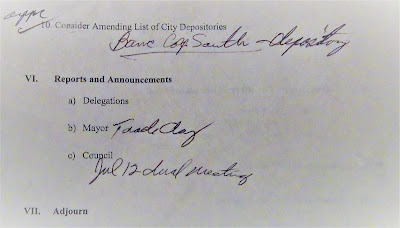 appr
10. Consider Amending List of City Depositories
Banc Cop South - depository
VI. Reports and Announcements
a) Delegations
b) Mayor Trade Day
c) Council
Jul 12 dual meeting
VII. Adjourn